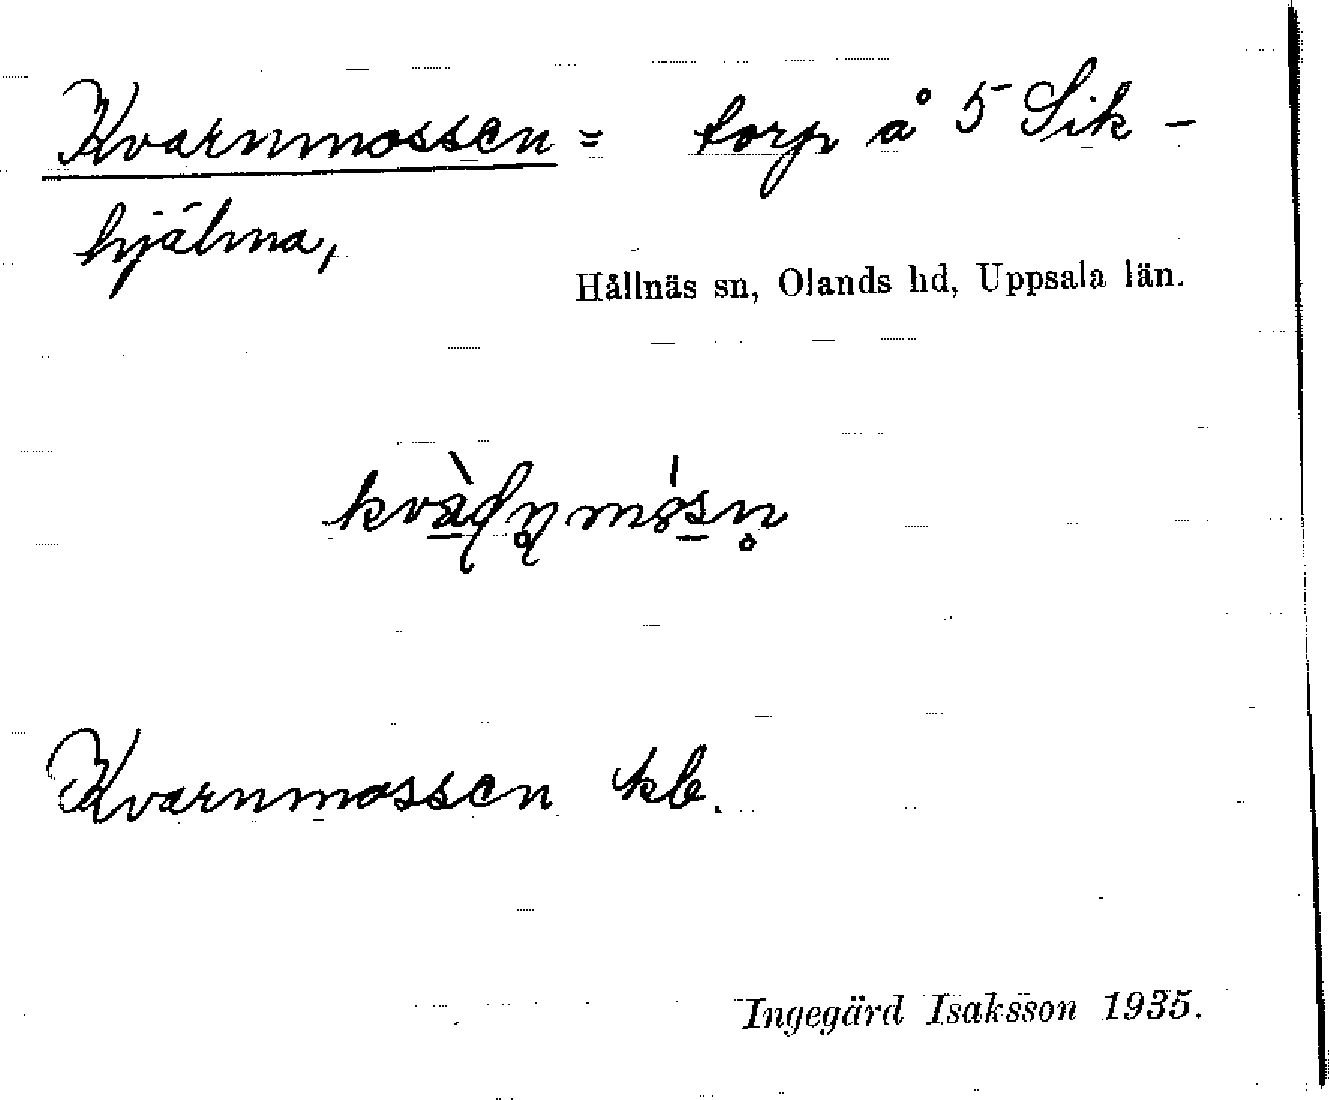 Kvarnmossen = torp å 5 Sik-
hjälma,
Hållnäs sn, Olands hd, Uppsala län.
Kvarnmossen kb.
Ingegärd Isaksson 1935.